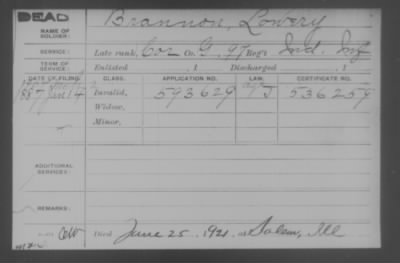 DEAD
NAME OF SOLDIER: Brannon, Lowery
SERVICE: Late rank, Cor Co. G, 97 Reg't Ind. Inf
TERM OF SERVICE: Enlisted , 1 Discharged , 1
DATE OF FILING. CLASS. APPLICATION NO. LAW. CERTIFICATE NO.
1887 June 14 Invalid, 593629 J 536259
Widow,
Minor,
ADDITIONAL SERVICES:
REMARKS:
Died June 25, 1921 at Salem, Ill